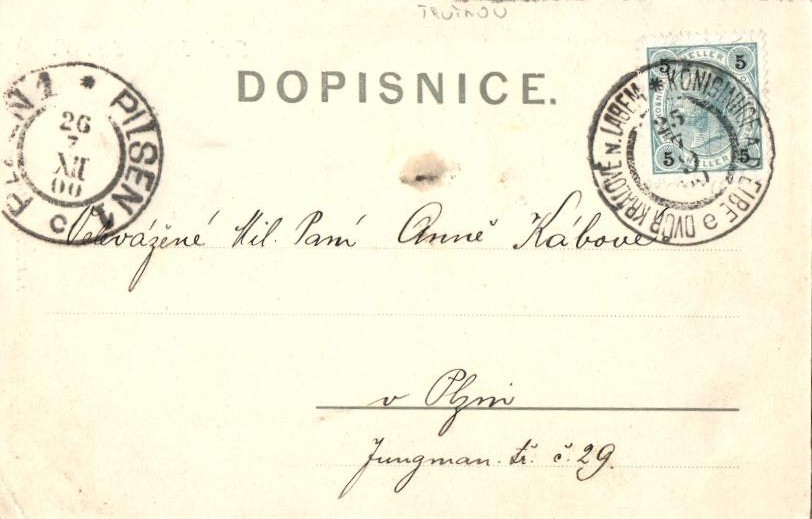 TRUTNOV
DOPISNICE.
PILSEN 1 * PLZEŇ 1
26
XII
00
c
5 HELLER 5
5 HELLER 5
KÖNIGINHOF A. ELBE * DVŮR KRÁLOVÉ N. LABEM
Velevážené Mil. Paní Anně Kábové
v Plzni
Jungman. tř. č. 29.